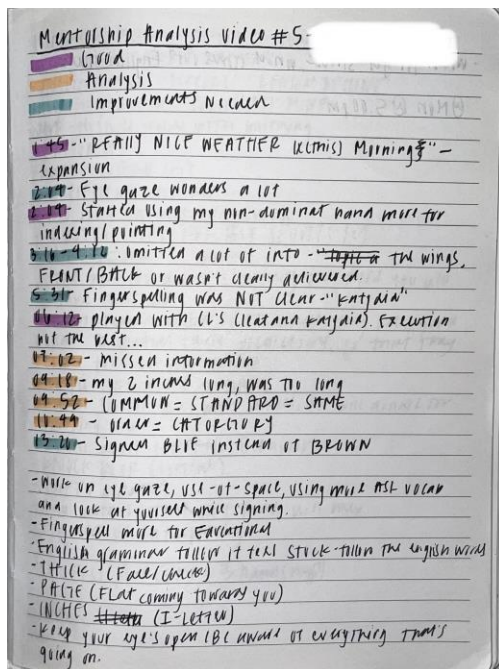 Mentorship Analysis video #5-
Good
Analysis
Improvements Needed
1:45-"REALLY NICE WEATHER (this) Morning" –
expansion
2:04- Eye gaze wonders a lot
2:04- Started using my non-dominat hand more for
indexing/pointing
3:16-4:12: omitted a lot of into - the wings,
FRONT/BACK or wasn't clearly delivered.
5:31- Fingerspelling was NOT clear-"katydia"
06:12- played with CL's (leat and katydia). Execution
not the best...
07:02- missed information
09:18- my 2 inches long, was too long
09:52- COMMON = STANDARD = SAME
10:44- order = CATORGORY
13:20- Signed BLUE instead of BROWN
-Work on eye gaze, use-of-space, using more ASL vocab
and look at yourself while signing.
-Fingerspell more for Educational
-English grammar follow it feel stuck-follow the english words
-THICK (Face/cheek)
-PAGE (Flat coming towards you)
-INCHES (I-Letter)
-keep your eye's open (BE aware of everything that's
going on.